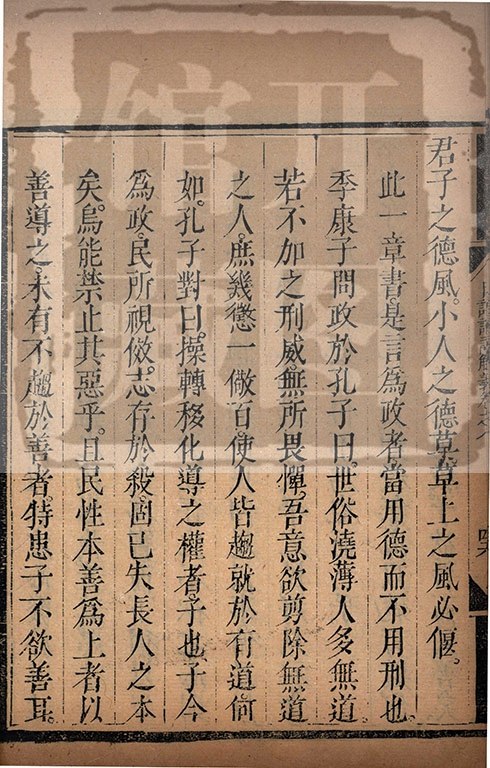 君子之德風。小人之德草。草上之風必偃。
此一章書。是言為政者當用德而不用刑也。
季康子問政於孔子曰。世俗澆薄人多無道
若不加之刑威無所畏憚。吾意欲剪除無道
之人。庶幾懲一儆百使人皆趨就於有道何
如。孔子對曰。操轉移化導之權者。子也子今
為政。民所視傚。志存於殺。固已失長人之本
矣。烏能禁止其惡乎。且民性本善為上者以
善導之。未有不趨於善者。特患子不欲善耳。